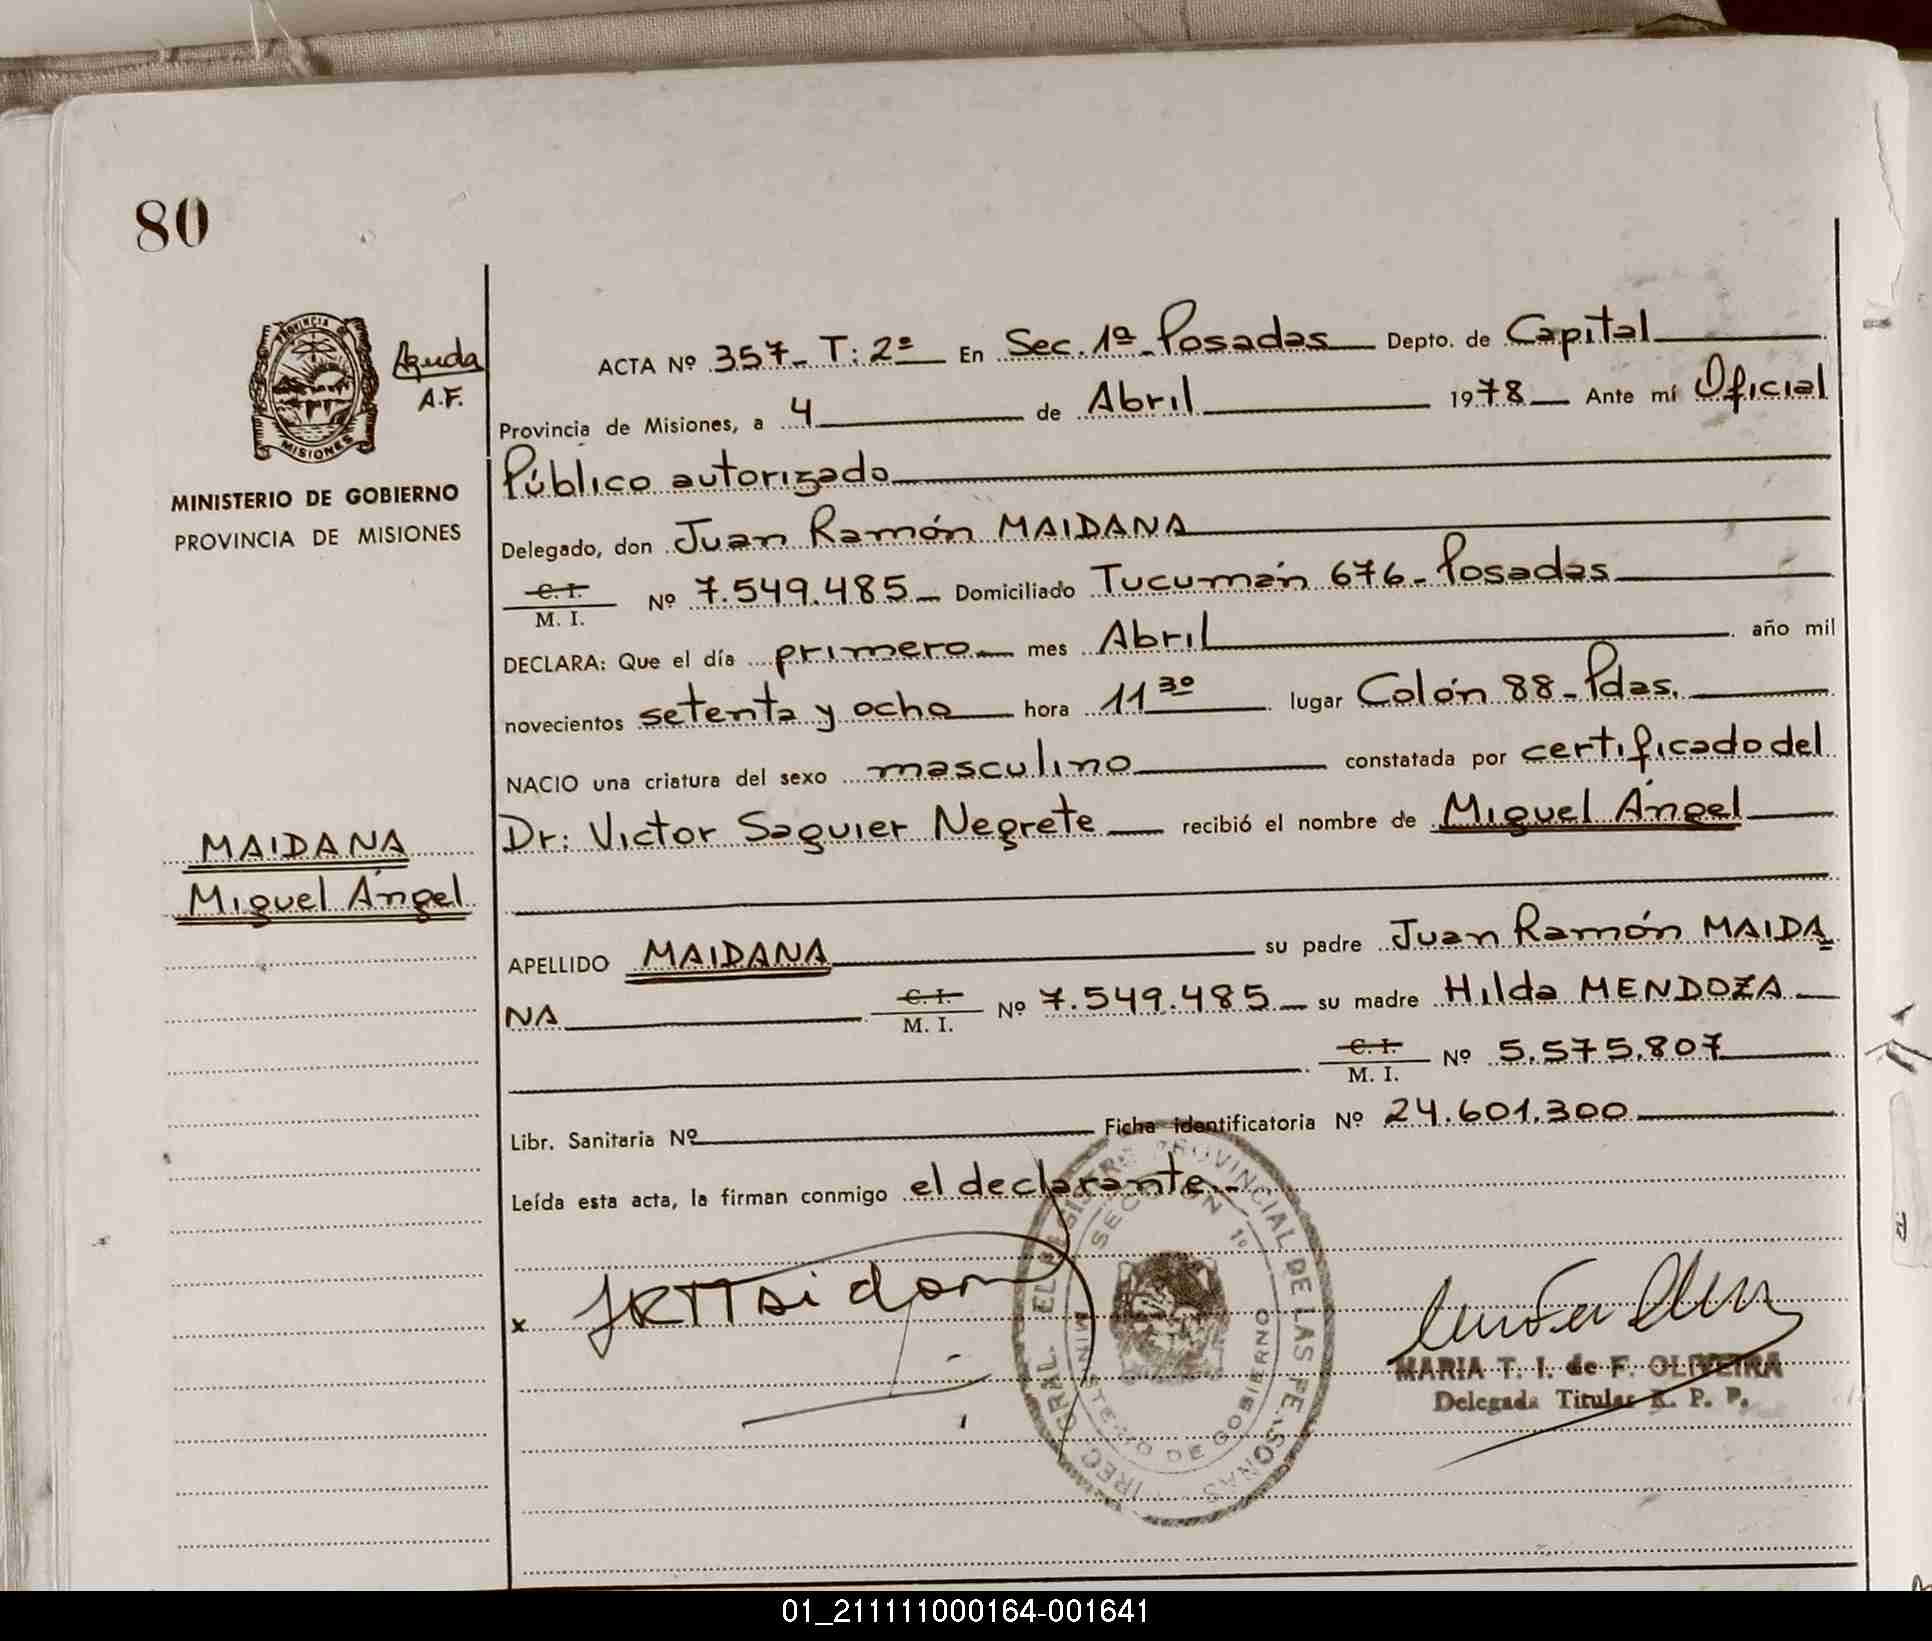 80
PROVINCIA DE
MISIONES
Ayuda
A.F.
MINISTERIO DE GOBIERNO
PROVINCIA DE MISIONES
ACTA Nº 357_ T: 2º En Sec. 1ª_ Posadas Depto. de Capital
Provincia de Misiones, a 4 de Abril 1978 Ante mí Oficial
Público autorizado
Delegado, don Juan Ramón MAIDANA
C. I.
M. I. Nº 7.549.485_ Domiciliado Tucumán 676_ Posadas
DECLARA: Que el día primero mes Abril año mil
novecientos setenta y ocho hora 11 30 lugar Colón 88_ Pdas.
NACIO una criatura del sexo masculino constatada por certificado del
Dr: Victor Saguier Negrete recibió el nombre de Miguel Ángel
MAIDANA
Miguel Ángel
APELLIDO MAIDANA su padre Juan Ramón MAIDA=
NA C. I. M. I. Nº 7.549.485_ su madre Hilda MENDOZA
C. I. M. I. Nº 5.575.807
Libr. Sanitaria Nº Ficha identificatoria Nº 24.601.300
Leída esta acta, la firman conmigo el declarante._
x JRMaidana
GRAL. EL REGISTRO PROVINCIAL DE LAS PERSONAS
SECCION 1º
MINISTERIO DE GOBIERNO
MARIA T. I. de F. OLIVEIRA
Delegada Titular R. P. P.
01_211111000164-001641